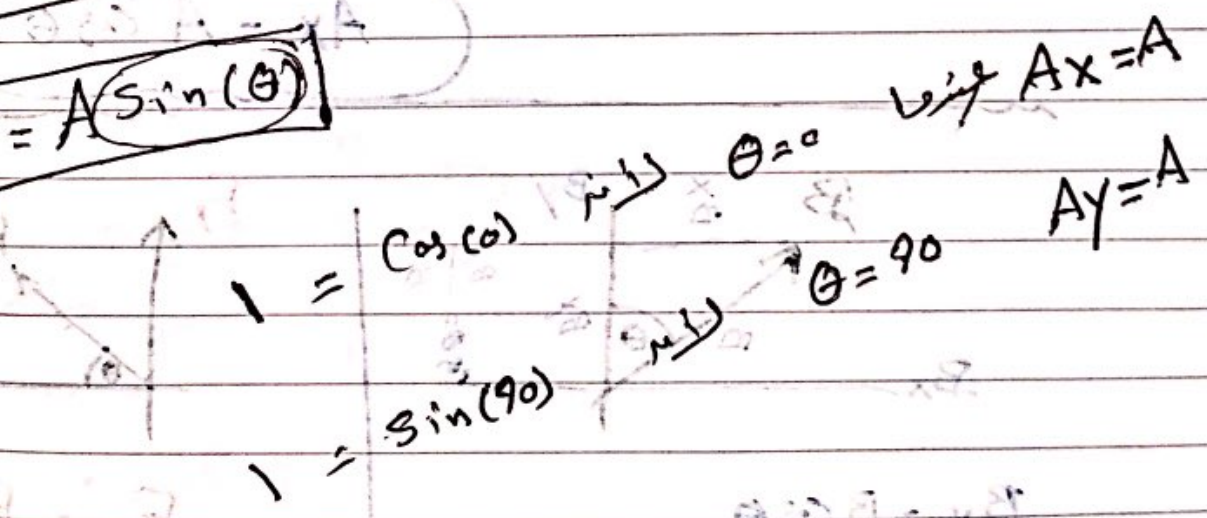 = A Sin(θ)
عندما Ax = A
1 = Cos(0) لان θ = 0
Ay = A
1 = Sin(90) لان θ = 90